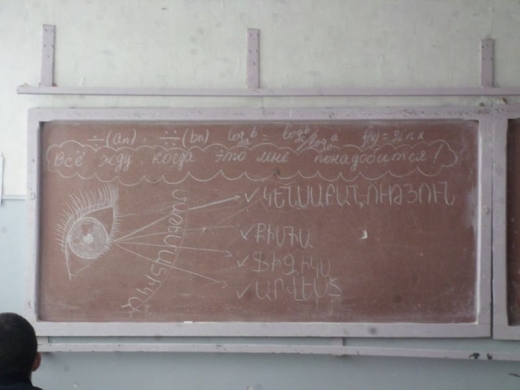 ÷(an) ∺(bn) log_a b = log b / log a f(x) = sin x
Всё жду когда это мне понадобится?
ՄԱԹԵՄԱՏԻԿԱ
✓ ԿԵՆՍԱԲԱՆՈՒԹՅՈՒՆ
✓ ՔԻՄԻԱ
✓ ՖԻԶԻԿԱ
✓ ԱՐՎԵՍՏ